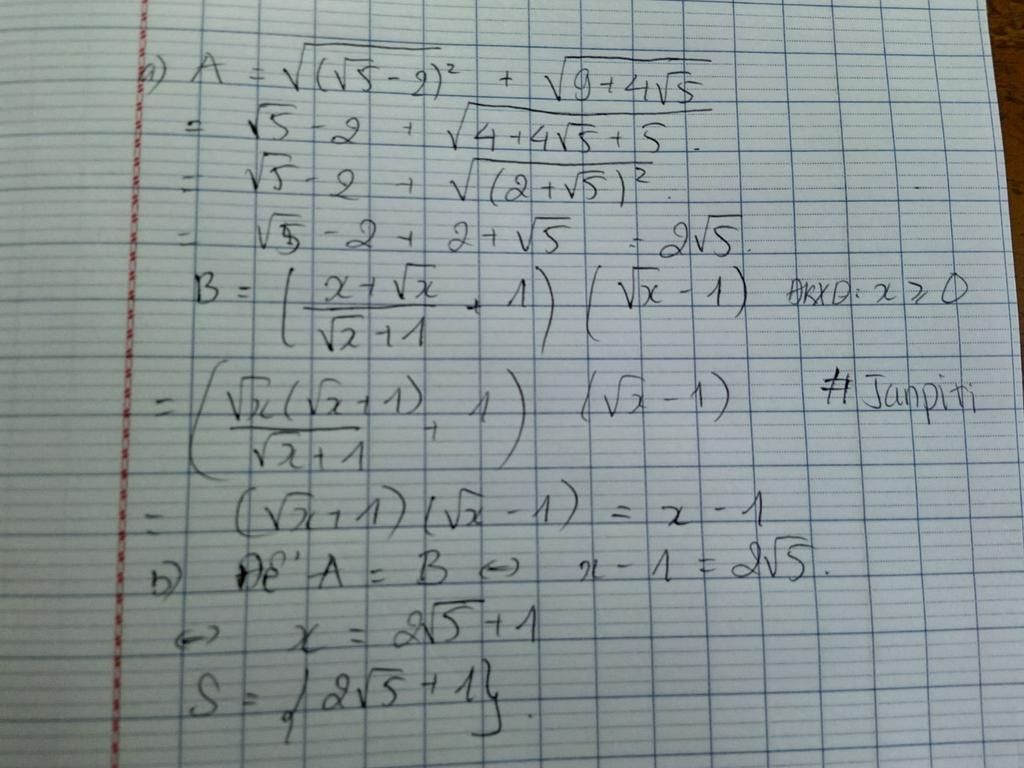 a) A = √((√5 - 2)²) + √(9 + 4√5)
= √5 - 2 + √(4 + 4√5 + 5).
= √5 - 2 + √((2 + √5)²).
= √5 - 2 + 2 + √5 = 2√5.
B = ((x + √x)/(√x + 1) + 1) (√x - 1) ĐKXĐ: x ≥ 0
= ((√x(√x + 1))/(√x + 1) + 1) (√x - 1) # Janpiti
= (√x + 1)(√x - 1) = x - 1
b) Để A = B ↔ x - 1 = 2√5.
↔ x = 2√5 + 1
S = {2√5 + 1}.